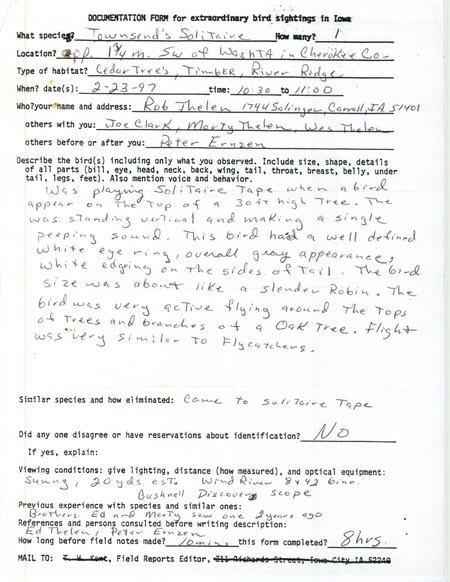 DOCUMENTATION FORM for extraordinary bird sightings in Iowa
What species? Townsend's Solitaire How many? 1
Location? app. 1 3/4 m. SW of WashTA in Cherokee Co-
Type of habitat? CedarTree's, TimbER, River Ridge
When? date(s): 2-23-97 time: 10:30 to 11:00
Who?your name and address: Rob Thelen 1744 Salinger, Carroll, IA 51401
others with you: Joe Clark, Marty Thelen, Wes Thelen
others before or after you: Peter Ernzen
Describe the bird(s) including only what you observed. Include size, shape, details
of all parts (bill, eye, head, neck, back, wing, tail, throat, breast, belly, under
tail, legs, feet). Also mention voice and behavior.
Was playing SoliTaire Tape when a bird
appear on the Top of a 30ft high Tree. The
was standing vertical and making a single
peeping sound. This bird had a well defined
white eye ring, overall gray appearance,
white edging on the sides of Tail. The bird
size was about like a slender Robin. The
bird was very active flying around The Tops
of Trees and branches of a Oak Tree. Flight
was very similar To Flycatchers.
Similar species and how eliminated: Came to Solitaire Tape
Did any one disagree or have reservations about identification? NO
If yes, explain:
Viewing conditions: give lighting, distance (how measured), and optical equipment:
Sunny, 20 yds. est. Wind River 8x42 bino.
Bushnell Discovery Scope
Previous experience with species and similar ones:
Brothers Ed and Marty saw one 2 years ago
References and persons consulted before writing description:
Ed Thelen, Peter Ernzen
How long before field notes made? 10 mins this form completed? 8 hrs.
MAIL TO: T. H. Kent, Field Reports Editor, 211 Richards Street, Iowa City IA 52240